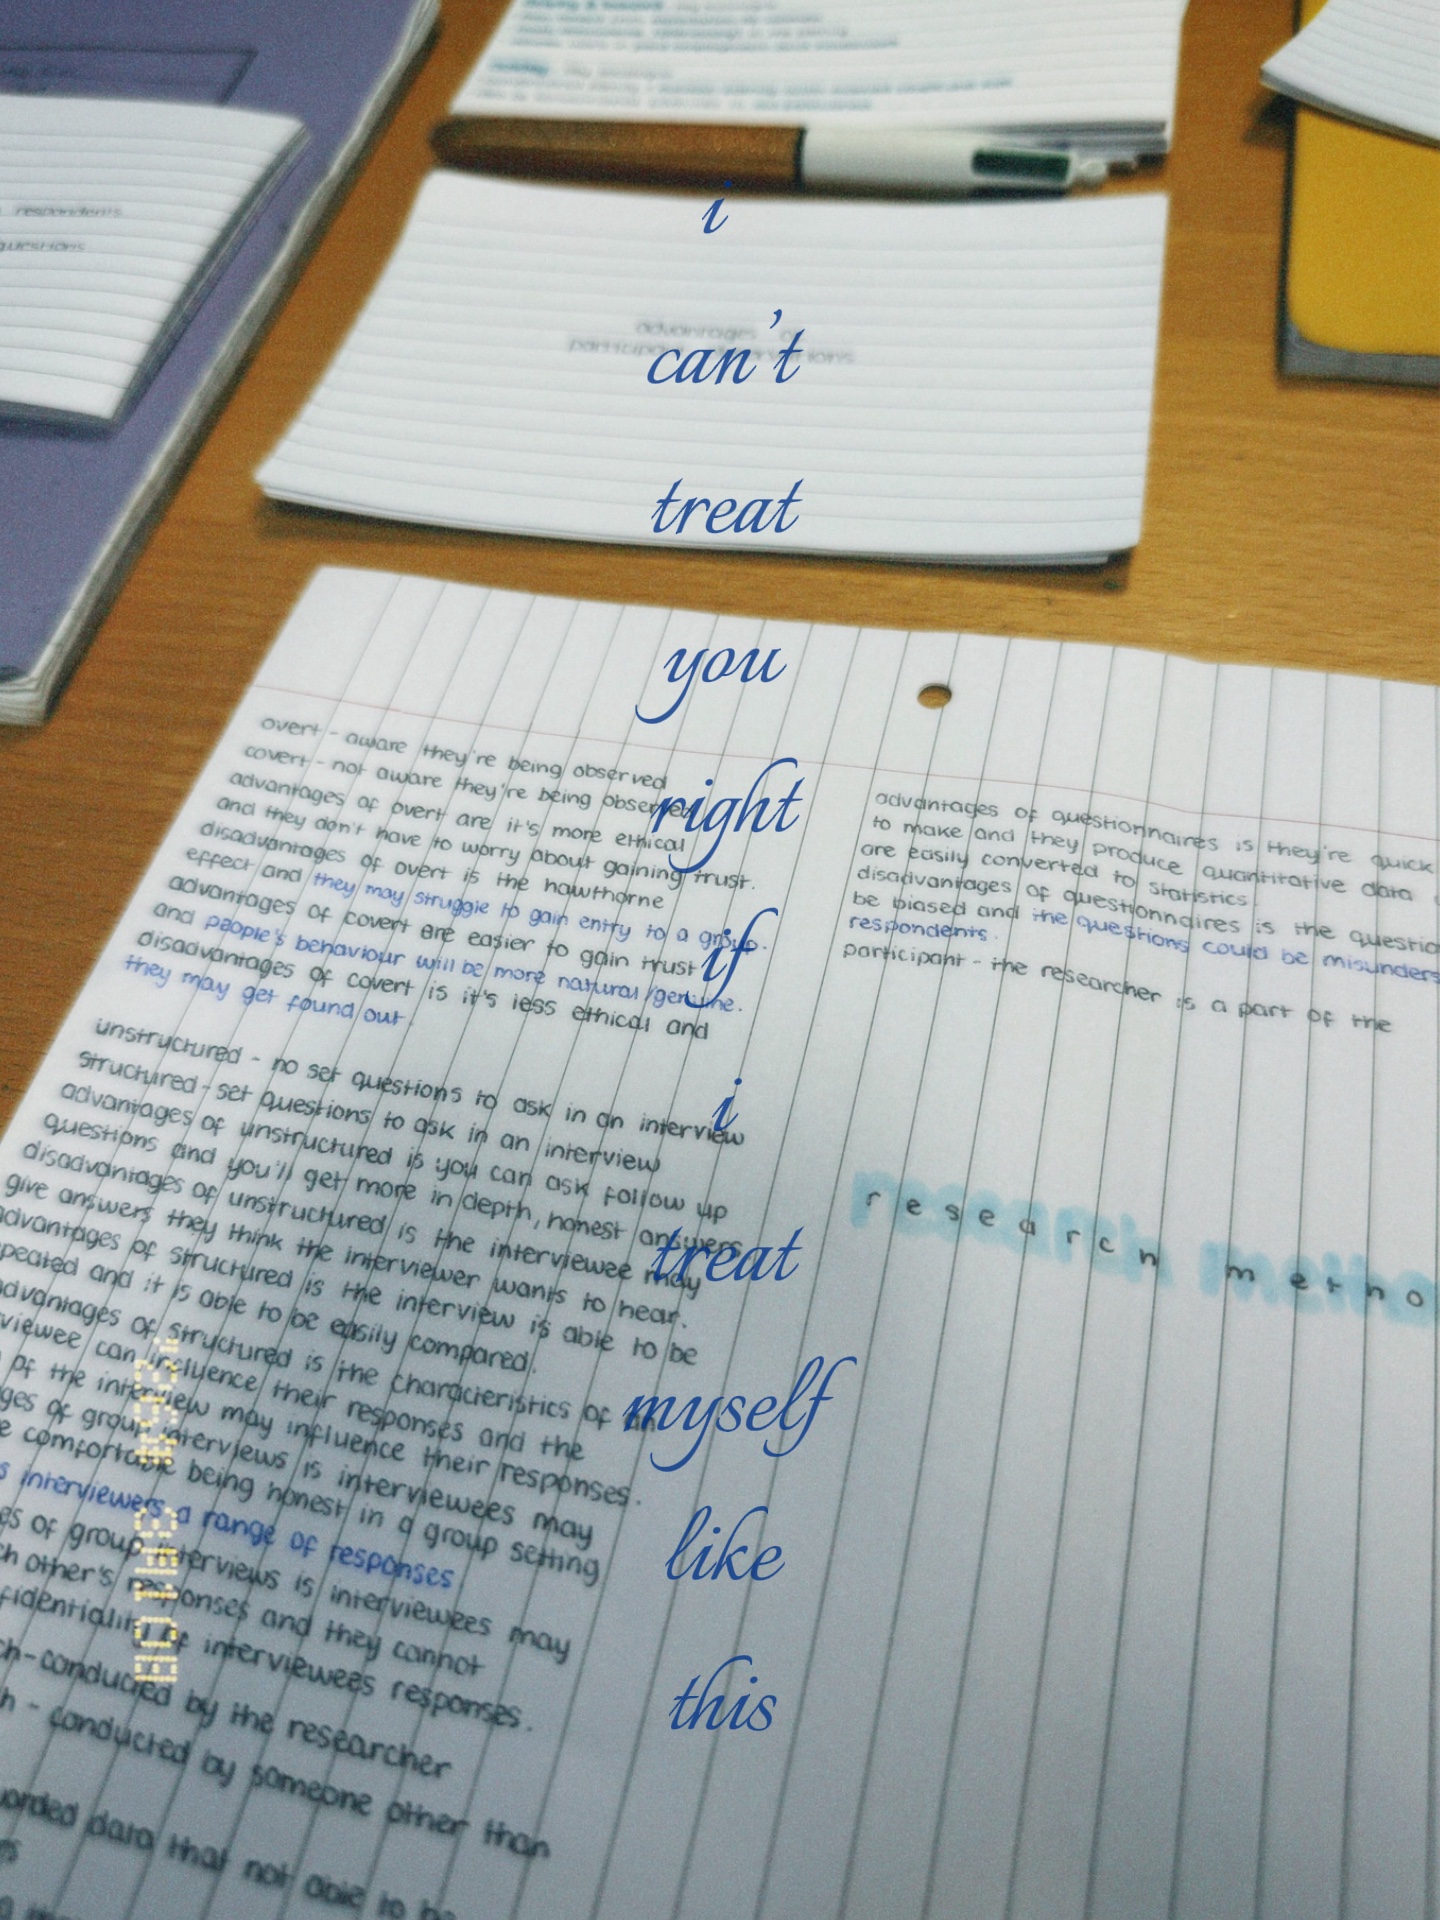 respondents
questions
advantages of
i
can't
treat
you
right
if
i
treat
myself
like
this
overt - aware they're being observed
covert - not aware they're being observed
advantages of overt are it's more ethical
and they don't have to worry about gaining trust.
disadvantages of overt is the hawthorne
effect and they may struggle to gain entry to a group.
advantages of covert are easier to gain trust
and people's behaviour will be more natural/genuine.
disadvantages of covert is it's less ethical and
they may get found out.
unstructured - no set questions to ask in an interview
structured - set questions to ask in an interview
advantages of unstructured is you can ask follow up
questions and you'll get more in depth, honest answers
disadvantages of unstructured is the interviewee may
give answers they think the interviewer wants to hear.
advantages of structured is the interview is able to be
peated and it is able to be easily compared.
advantages of structured is the characteristics of an
viewee can influence their responses and the
of the interview may influence their responses.
ges of group interviews is interviewees may
comfortable being honest in a group setting
s interviewers a range of responses
es of group interviews is interviewees may
ch other's responses and they cannot
fidentiality of interviewees responses.
ch - conducted by the researcher
h - conducted by someone other than
data that not able to be
advantages of questionnaires is they're quick
to make and they produce quantitative data
are easily converted to statistics.
disadvantages of questionnaires is the questio
be biased and the questions could be misunders
respondents.
participant - the researcher is a part of the
research metho